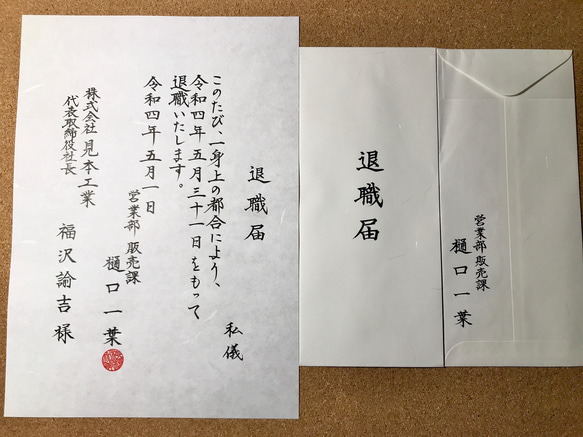 退職届
私儀
このたび、一身上の都合により、
令和四年五月三十一日をもって
退職いたします。
令和四年五月一日
営業部 販売課
樋口一葉
株式会社 見本工業
代表取締役社長
福沢諭吉様
退職届
営業部 販売課
樋口一葉